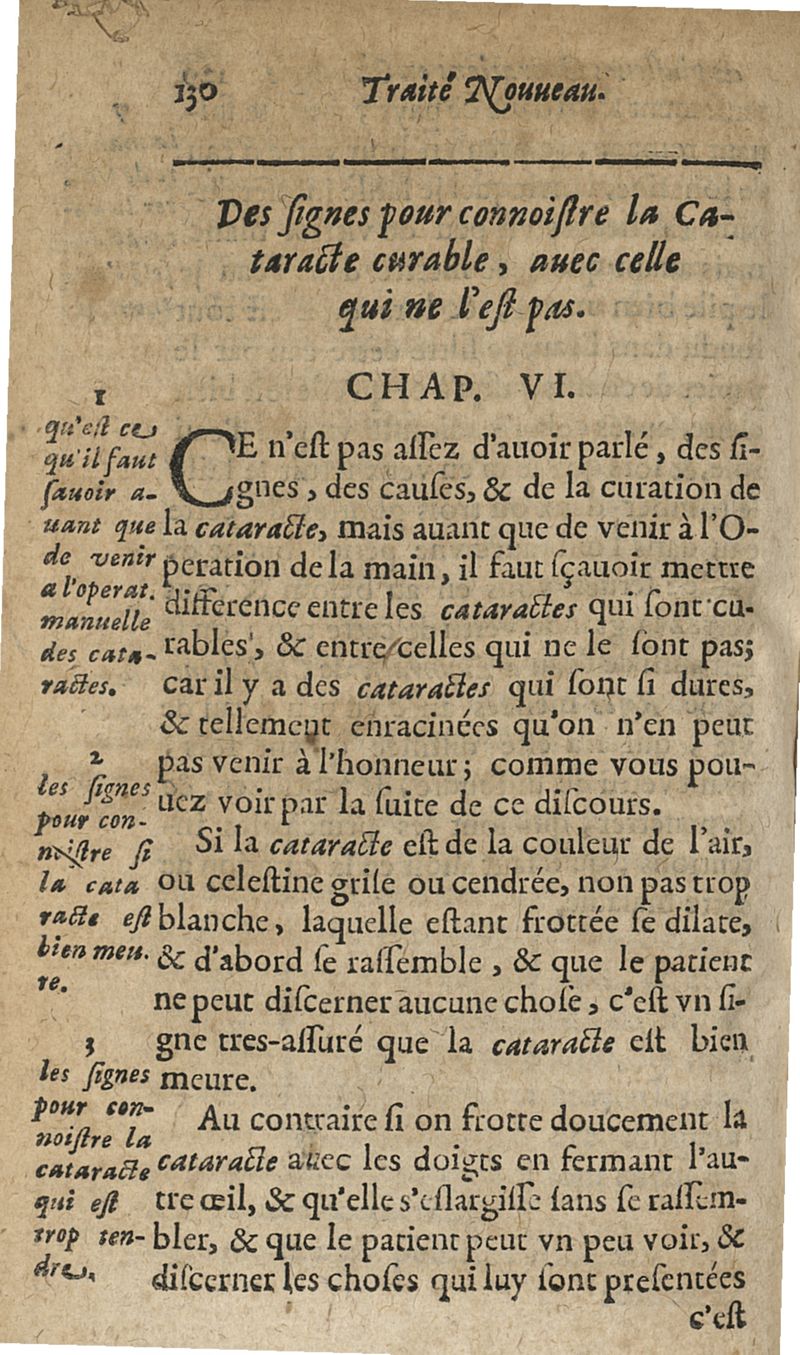 130 Traité Nouueau.
Des ſignes pour connoiſtre la Ca-
taracte curable, auec celle
qui ne l'eſt pas.
CHAP. VI.
CE n'eſt pas aſſez d'auoir parlé, des ſi-
gnes, des cauſes, & de la curation de
la cataracte, mais auant que de venir à l'O-
peration de la main, il faut ſçauoir mettre
difference entre les cataractes qui ſont cu-
rables, & entre celles qui ne le ſont pas;
car il y a des cataractes qui ſont ſi dures,
& tellement enracinées qu'on n'en peut
pas venir à l'honneur; comme vous pou-
uez voir par la ſuite de ce diſcours.
Si la cataracte eſt de la couleur de l'air,
ou celeſtine griſe ou cendrée, non pas trop
blanche, laquelle eſtant frottée ſe dilate,
& d'abord ſe raſſemble, & que le patient
ne peut diſcerner aucune choſe, c'eſt vn ſi-
gne tres-aſſuré que la cataracte eſt bien
meure.
Au contraire ſi on frotte doucement la
cataracte auec les doigts en fermant l'au-
tre œil, & qu'elle s'eſlargiſſe ſans ſe raſſem-
bler, & que le patient peut vn peu voir, &
diſcerner les choſes qui luy ſont preſentées
c'eſt
1
qu'eſt ce
qu'il faut
ſauoir a-
uant que
de venir
a l'operat.
manuelle
des cata-
ractes.
2
les ſignes
pour con-
noiſtre ſi
la cata
racte eſt
bien meu.
re.
3
les ſignes
pour con-
noiſtre la
cataracte
qui eſt
trop ten-
dre.